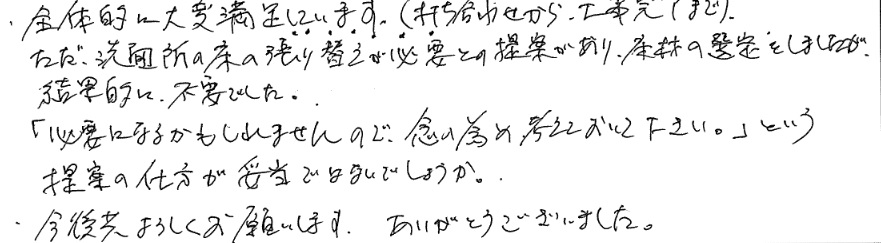 ・全体的に大変満足しています。(打ち合わせから、工事完了まで)。
ただ、洗面所の床の張り替えが必要との提案があり、床材の選定をしましたが、
結果的に、不要でした。
「必要になるかもしれませんので、念の為め考えておいて下さい。」という
提案の仕方が妥当ではないでしょうか。
・今後共よろしくお願いします。ありがとうございました。